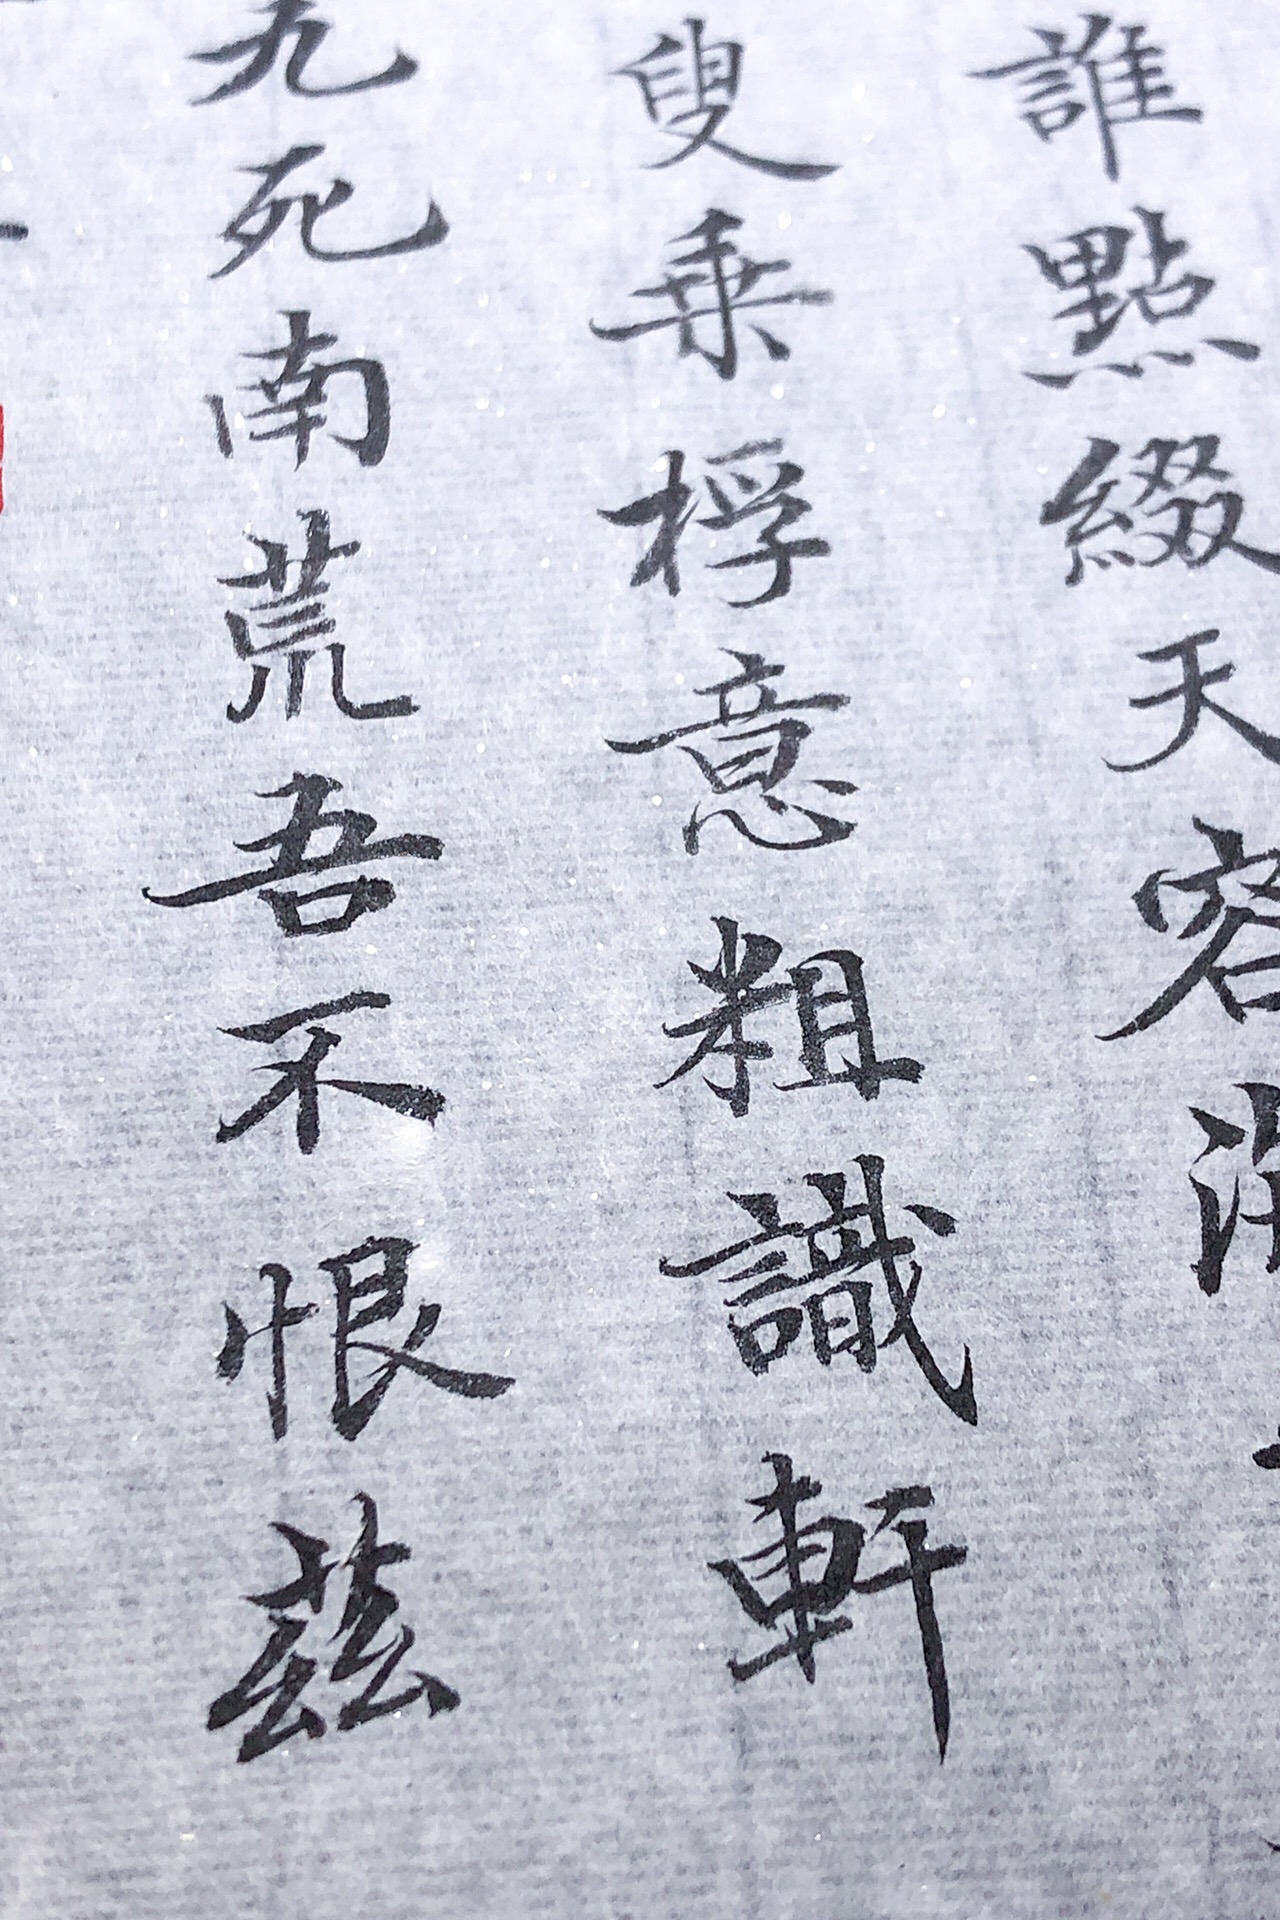 誰點綴天容海
叟乗桴意粗識軒
九死南荒吾不恨茲